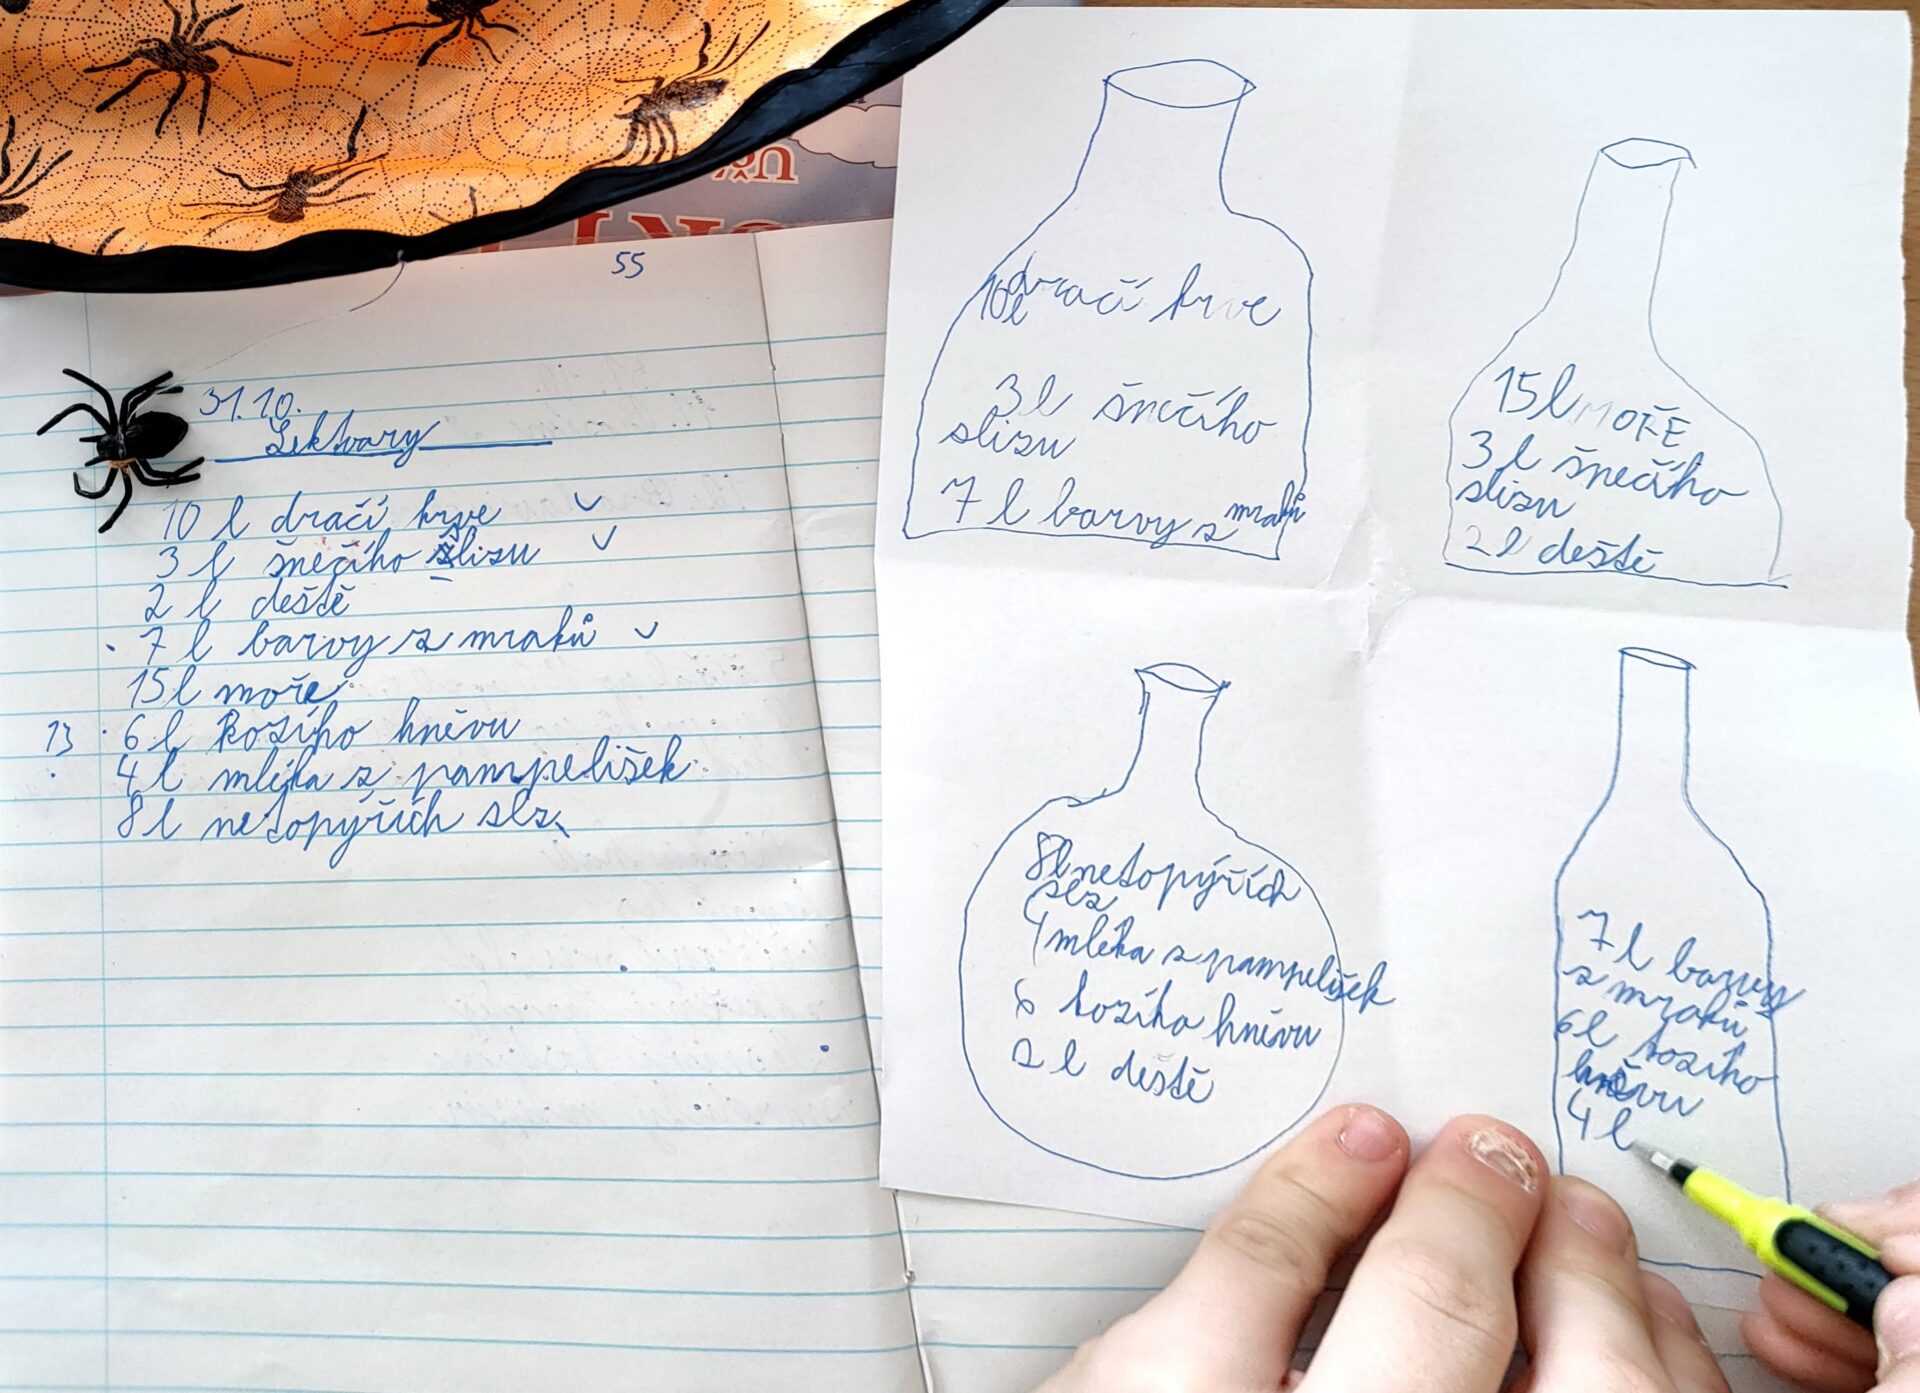 55
31.10.
Lektvary
10 l dračí krve
3 l šnečího slizu
2 l deště
7 l barvy z mraků
15l moře
13
6 l kozího hněvu
4 l mléka z pampelišek
8 l netopýřích slz
10l dračí krve
3 l šnečího
slizu
7 l barvy z mraků
15l MOŘE
3 l šnečího
slizu
2 l deště
8l netopýřích
slz
4 mléka z pampelišek
6 kozího hněvu
2 l deště
7 l barvy
z mraků
6l kozího
hněvu
4 l